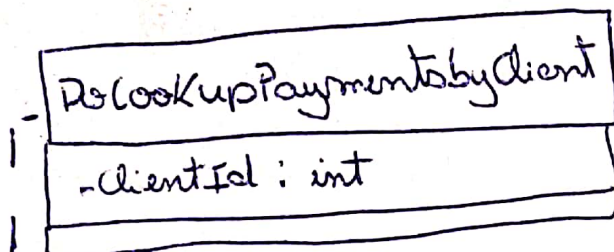 DoLookupPaymentsbyClient
-ClientId : int